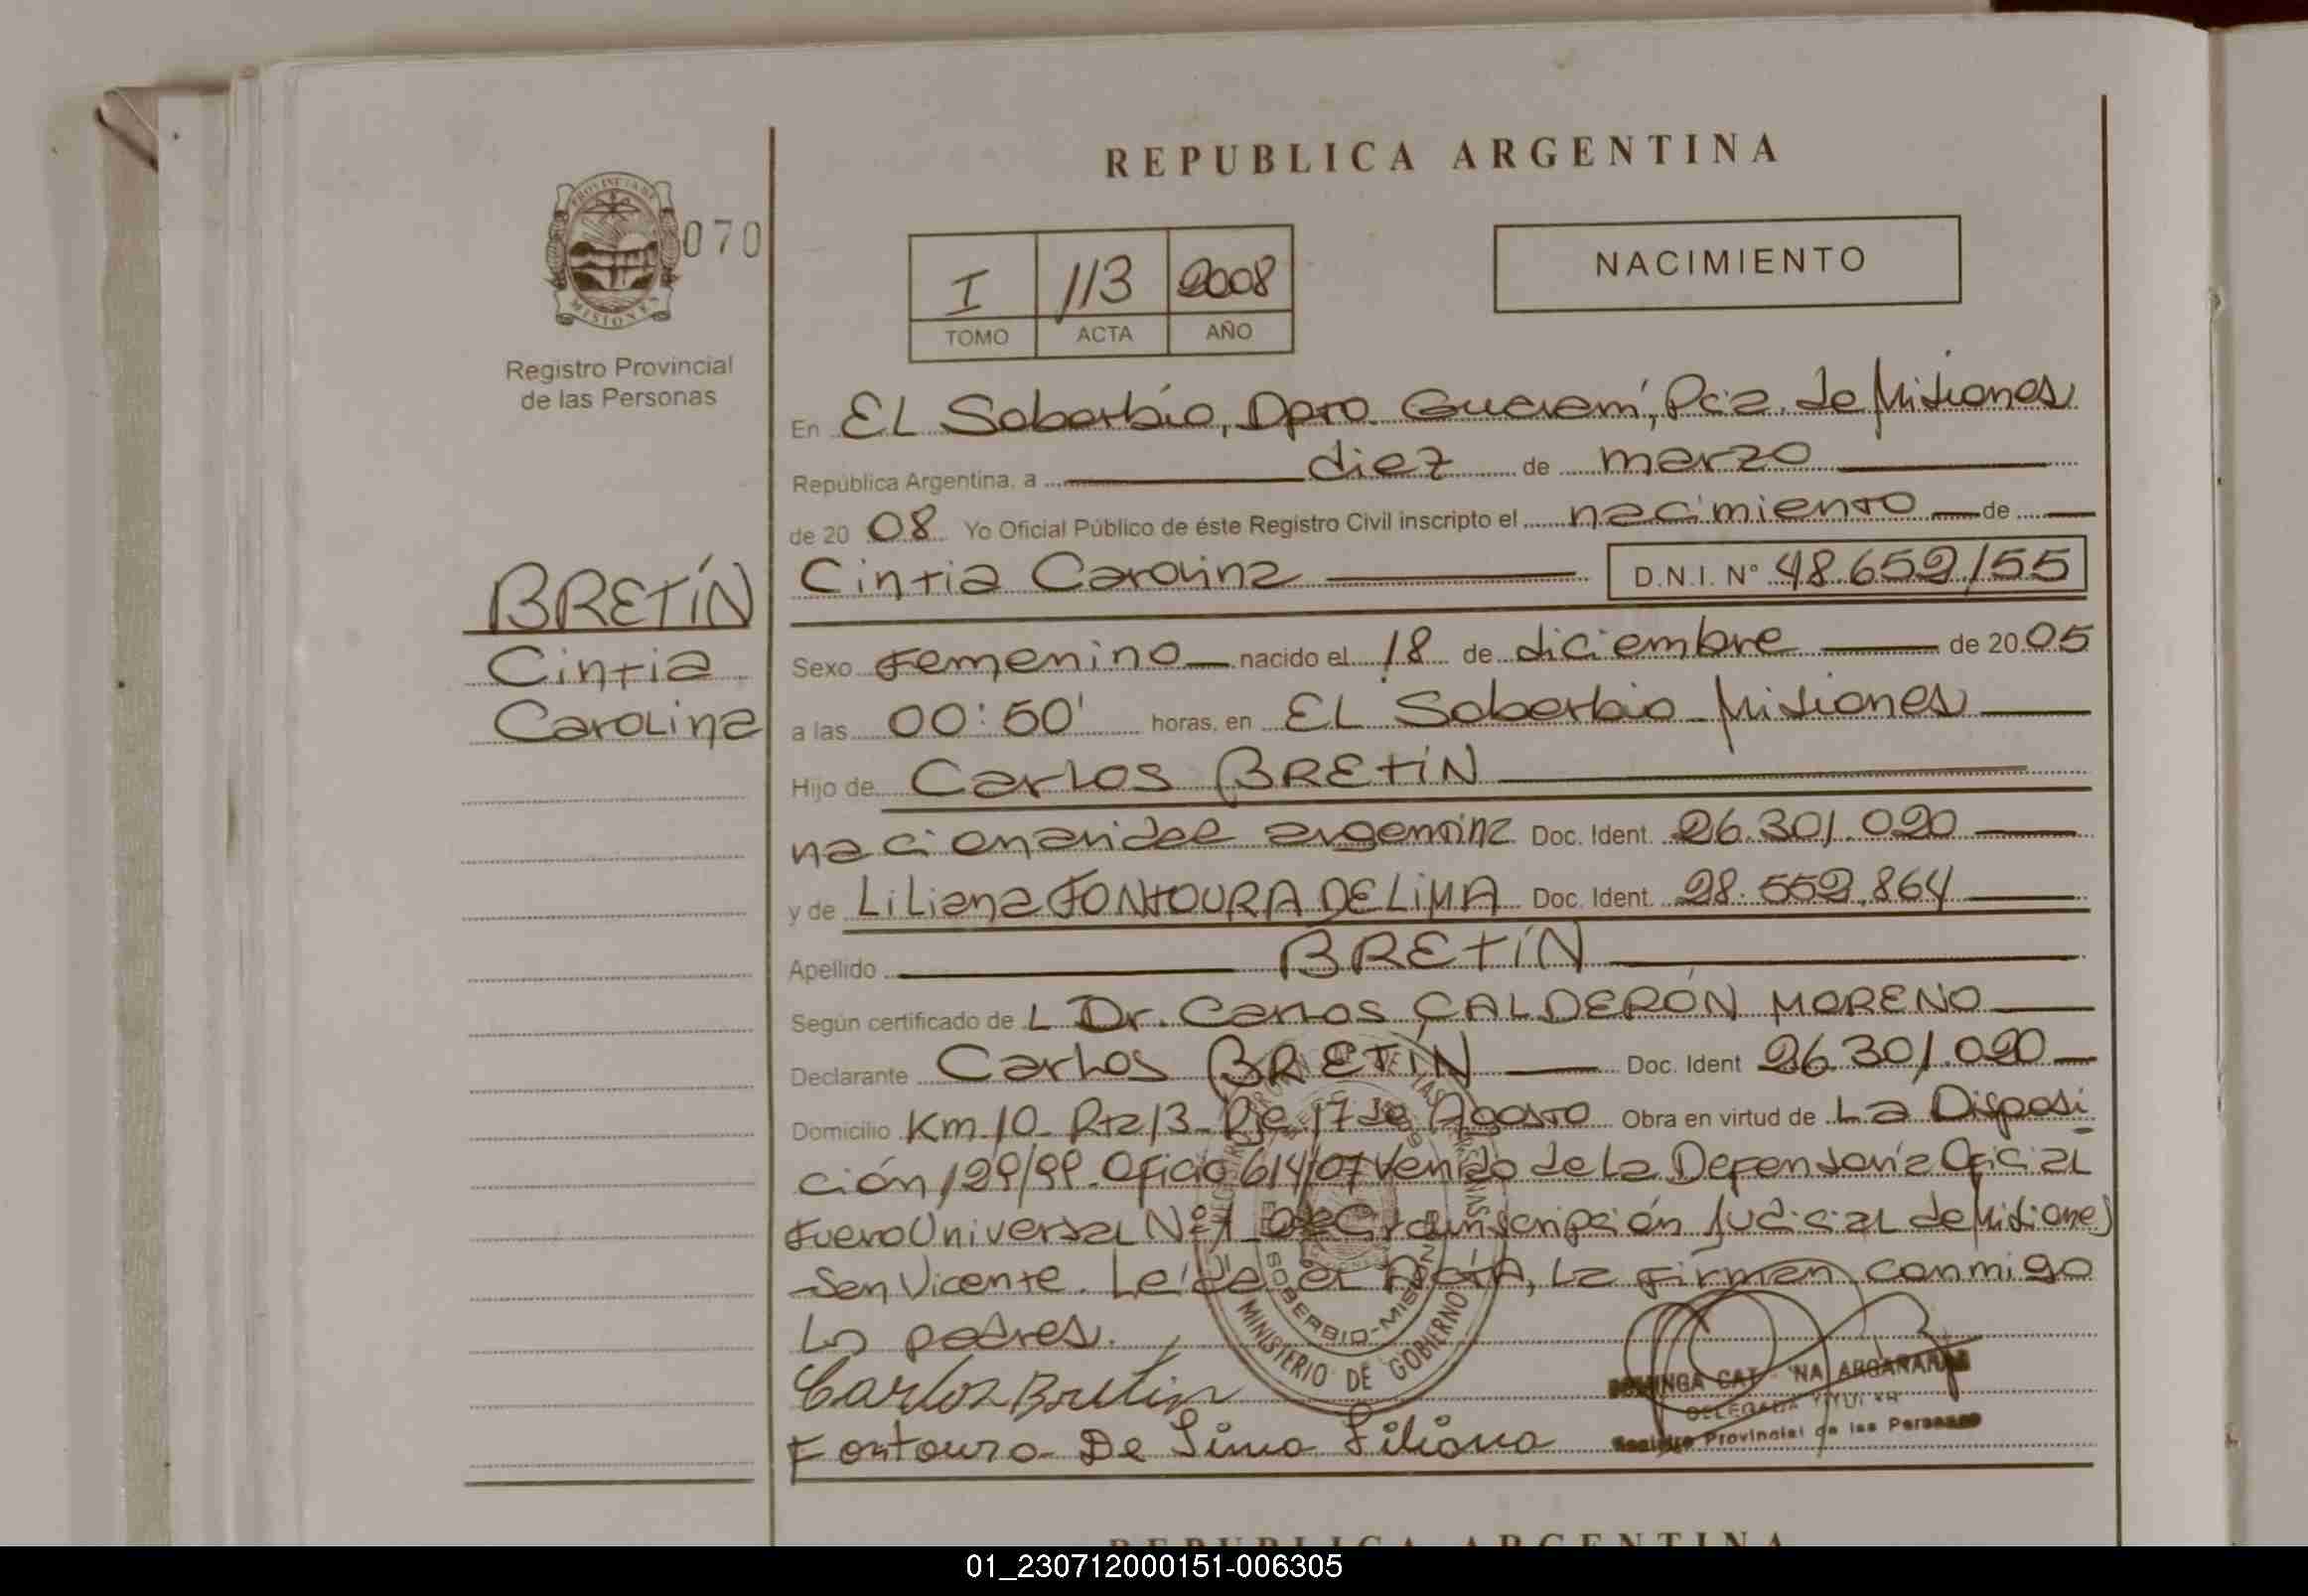 REPUBLICA ARGENTINA
PROVINCIA DE
MISIONES
070
Registro Provincial
de las Personas
I 113 2008
TOMO ACTA AÑO
NACIMIENTO
En EL Soberbio, Dpto. Guaraní, Pcia. de Misiones
República Argentina, a diez de marzo
de 20 08 Yo Oficial Público de éste Registro Civil inscripto el nacimiento de
Cintia Carolina D.N.I. N° 48.652/55
BRETÍN
Cintia
Carolina
Sexo Femenino nacido el 18 de diciembre de 20 05
a las 00:50' horas, en EL Soberbio Misiones
Hijo de Carlos BRETÍN
nacionalidad argentina Doc. Ident. 26.301.020
y de Liliana FONTOURA DE LIMA Doc. Ident. 28.552.864
Apellido BRETÍN
Según certificado de L Dr. Carlos CALDERÓN MORENO
Declarante Carlos BRETÍN Doc. Ident 26.301.020
Domicilio Km 10 - Rta 13 - Pje 17 de Agosto Obra en virtud de La Disposi
ción 129/99. Oficio 614/07 Venido de La Defensoría Oficial
Fuero Universal N° 1 Circunscripción Judicial de Misiones
San Vicente. Leída el ActA, La firman conmigo
Los padres.
Carlos Bretin
Fontoura De Lima Liliana
SOBERBIO-MISIONES
MINISTERIO DE GOBIERNO
DOMINGA ARGARAÑAZ
DELEGADA TITULAR
Registro Provincial de las Personas
REPUBLICA ARGENTINA
01_230712000151-006305